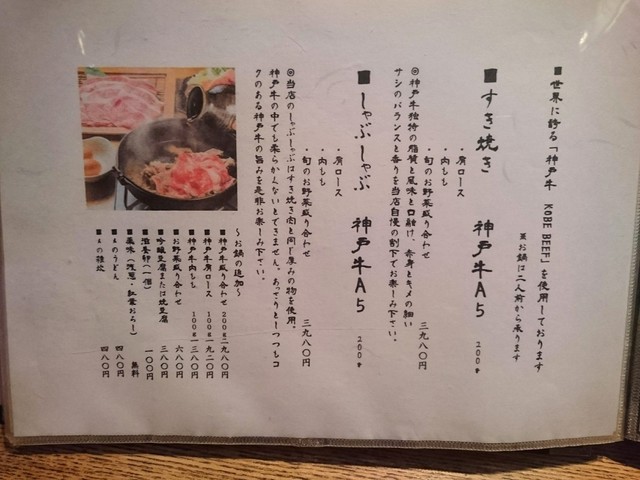 ■世界に誇る「神戸牛 KOBE BEEF」を使用しております
※お鍋は二人前から承ります
■すき焼き 神戸牛A5 200g
・肩ロース
・内もも
・旬のお野菜盛り合わせ 三九八〇円
◎神戸牛独特の脂質と風味と口融け、赤身とキメの細い
サシのバランスと香りを当店自慢の割下でお楽しみ下さい。
■しゃぶしゃぶ 神戸牛A5 200g
・肩ロース
・内もも
・旬のお野菜盛り合わせ 三九八〇円
◎当店のしゃぶしゃぶはすき焼き肉と同じ厚みの物を使用。
神戸牛の中でも柔らかくないとできません。あっさりとしつつもコ
クのある神戸牛の旨みを是非お楽しみ下さい。
〜お鍋の追加〜
■神戸牛盛り合わせ 200g 二九八〇円
■神戸牛肩ロース 100g 一九二〇円
■神戸牛内もも 100g 一三八〇円
■お野菜盛り合わせ 六八〇円
■吟醸豆腐または焼豆腐 三八〇円
■滋養卵(一個) 一〇〇円
■薬味(浅葱・紅葉おろし) 無料
■〆のうどん 四八〇円
■〆の雑炊 四八〇円